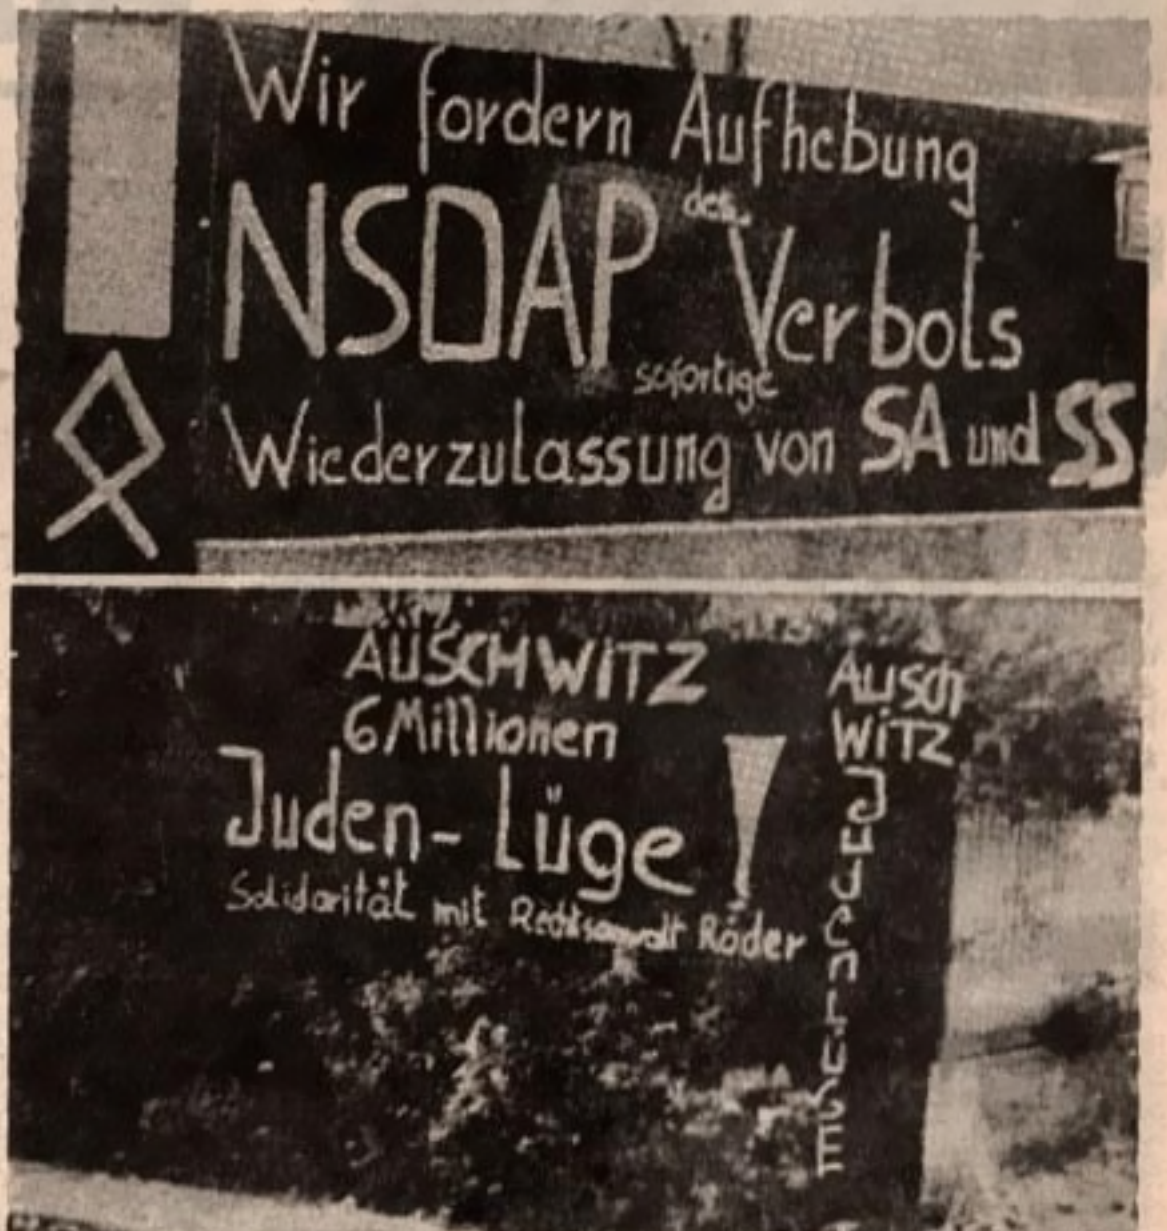 Wir fordern Aufhebung
des
NSDAP Verbots
sofortige
Wiederzulassung von SA und SS
AUSCHWITZ
6 Millionen
Juden-Lüge
Solidarität mit Rechtsanwalt Röder
AUSCH
WITZ
Judenlüge